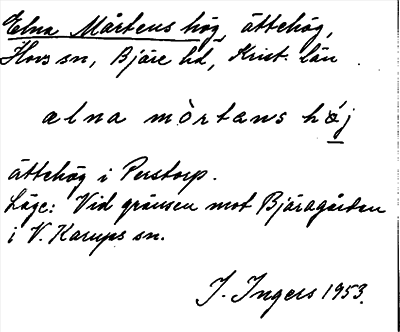 Elna Mårtens hög, ättehög,
Hovs sn, Bjäre hd, Krist. län
ælna mòrtæns høj
ättehög i Perstorp.
Läge: Vid gränsen mot Bjäragården
i V. Karups sn.
I. Ingers 1953.